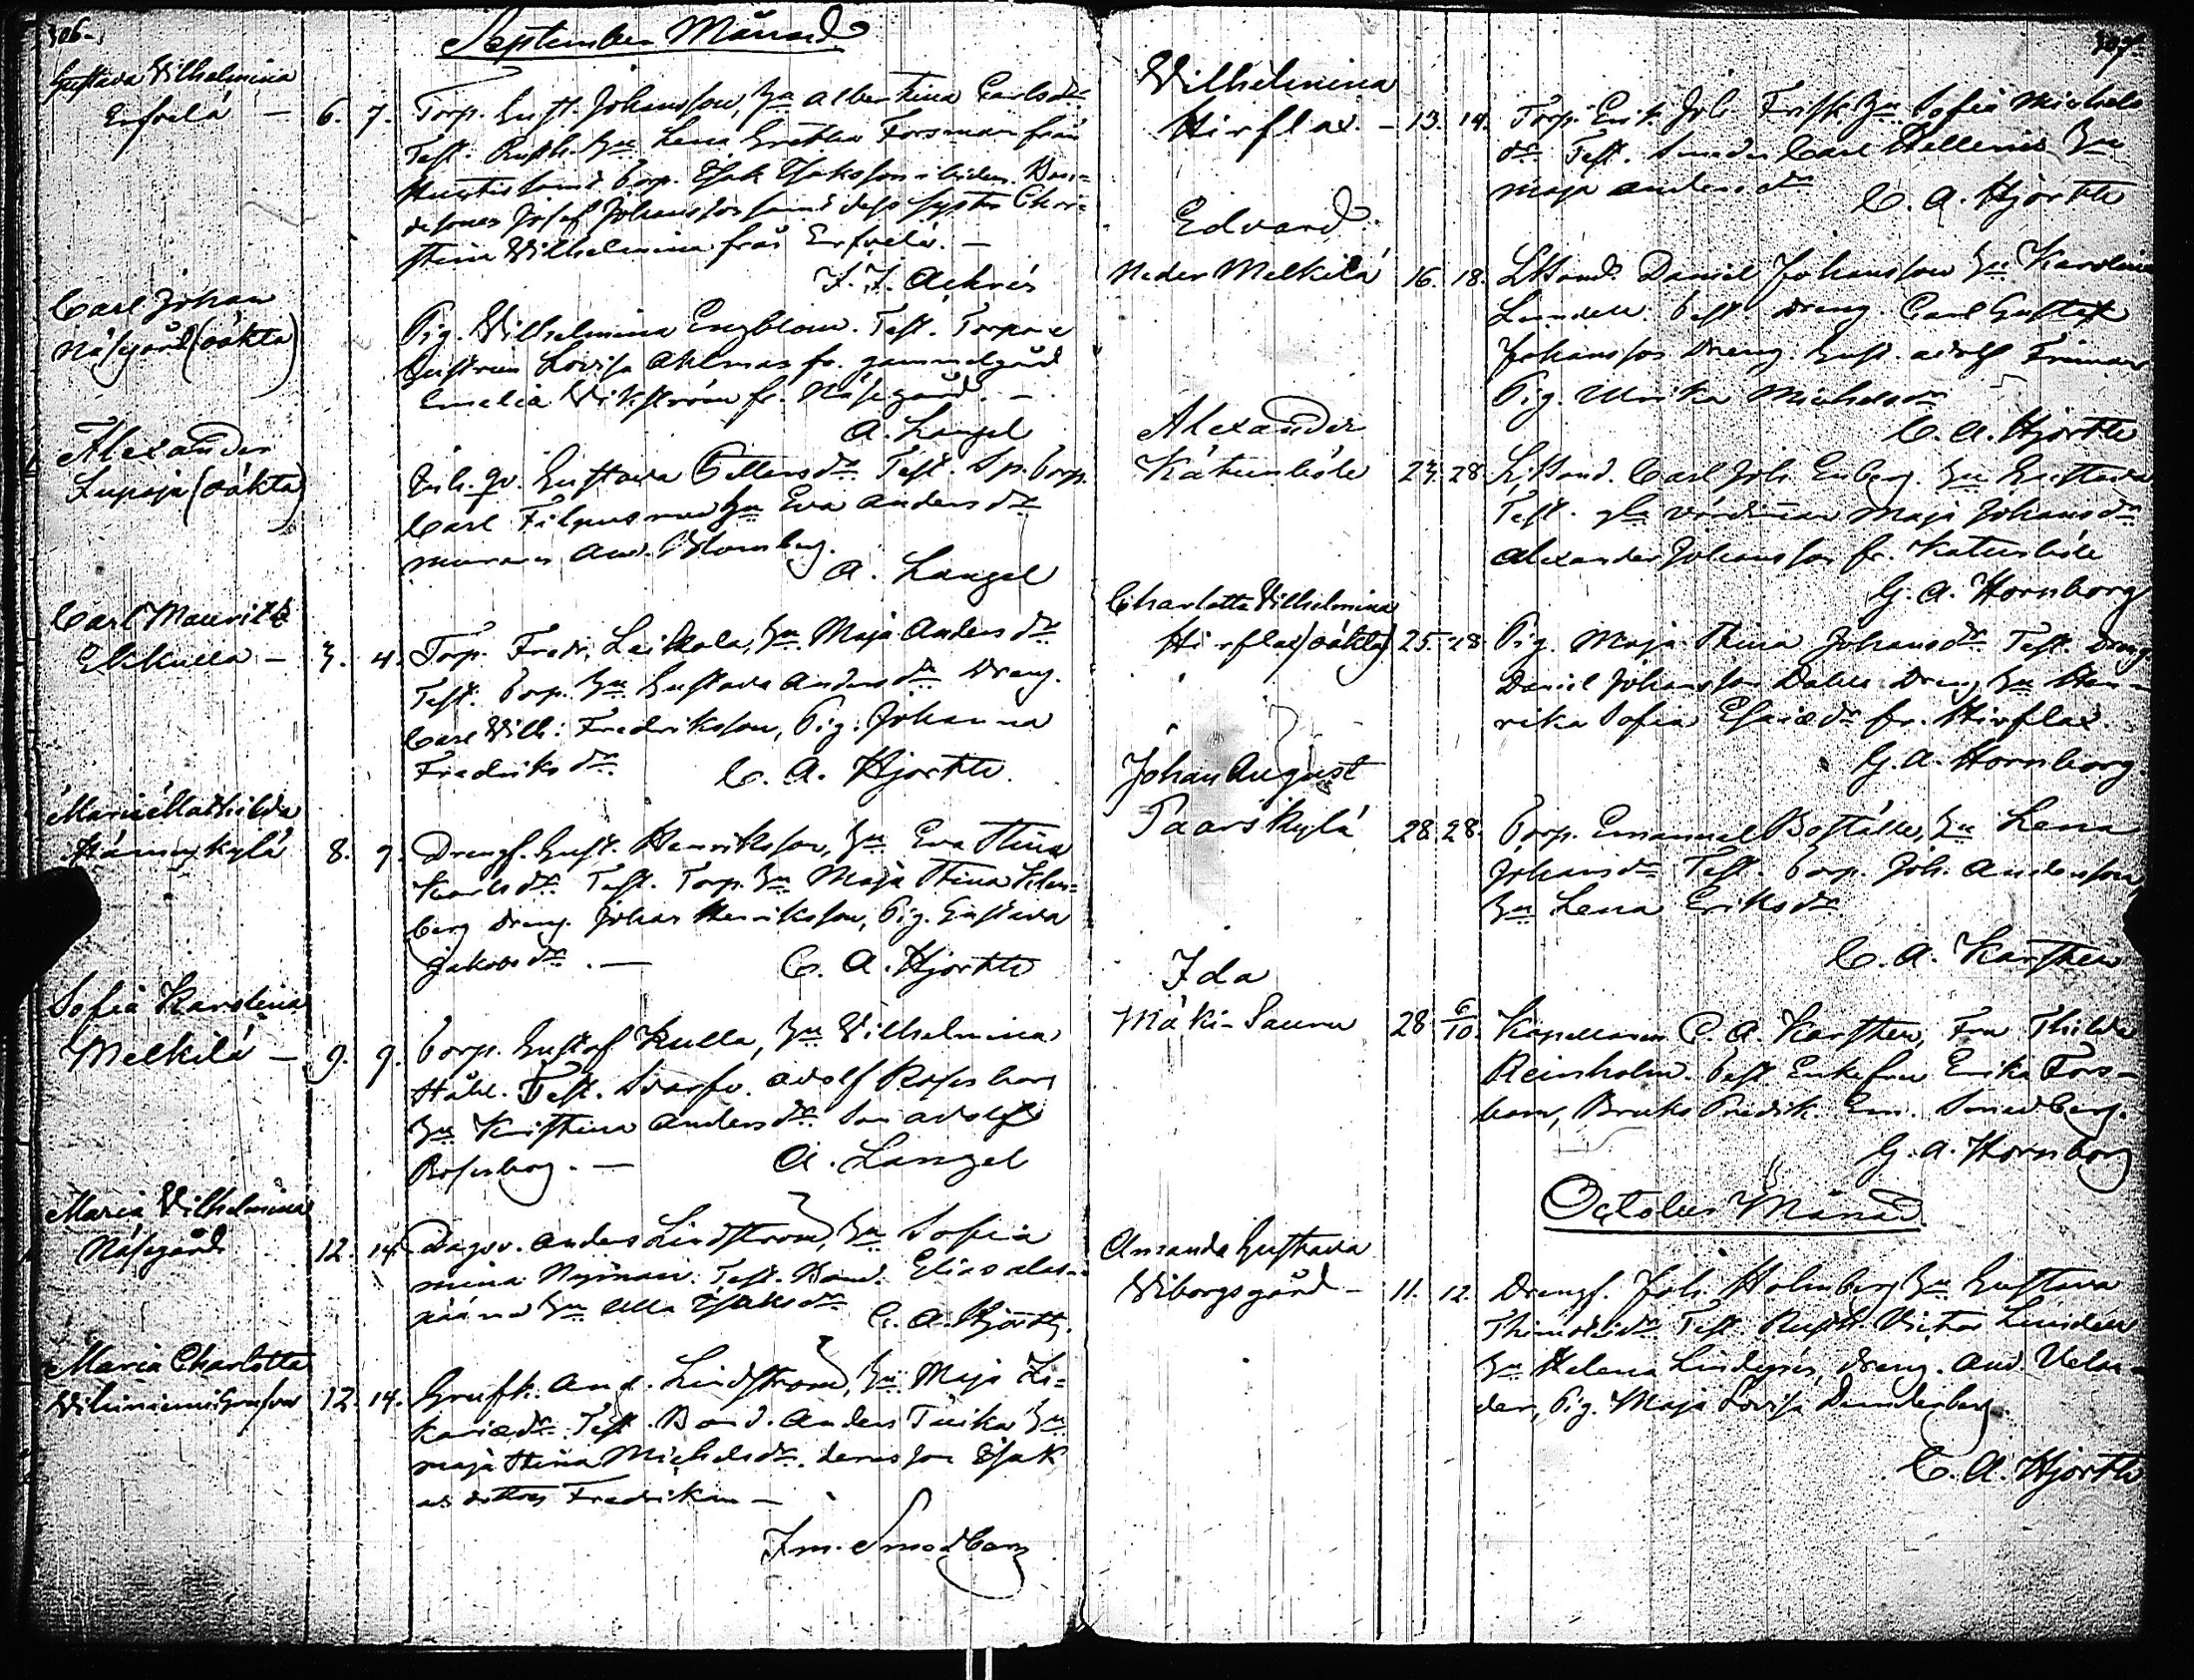 306.
September Månad
Gustava Wilhelmina
Erfvelä — 6. 7. Torp. Gust. Johansson, Hu Albertina Carlsdr
Test. Rusth. Hu Lena Greta Forsman från
samt Torp. Isak Isaksson
Josef Johansson samt dess syster Chri=
stina Wilhelmina från Erfvelä. —
F. F. Ahrén
Carl Johan
Näsegård (oäkta) Pig. Wilhelmina Engblom. Test. Torpare
hustrun Lovisa Ahlman fr. gammelgård
Emelia Wikström fr. Näsegård. —
A. Langel
Alexander
Lupaja (oäkta) Inh. qv. Gustava Pettersdr Test. Sp. Torp.
Carl Filpus Hu Eva Andersdr
muraren And. Blomberg.
A. Langel
Carl Mauritz
Ekkulla — 3. 4. Torp. Fredr. Leikkola, Hu Maja Andersdr
Test. Torp. Hu Gustava Andersdr Dreng.
Carl Wilh: Fredriksson, Pig. Johanna
Fredriksdr C. A. Hjorth.
Maria Mathilda
Hännykylä 8. 9. Drengf. Gust. Henriksson, Hu Eva Stina
Karlsdr Test. Torp. Hu Maja Stina
berg Dreng. Johan Henriksson, Pig. Gustava
Jakobsdr. — C. A. Hjorth
Sofia Karolina
Melkilä — 9. 9. Torp. Gustaf Kulla, Hu Wilhelmina
Ståhl. Test. Svarfv. Adolf Rosenborg
Hu Kristina Andersdr Son Adolf
Rosenborg. — A. Langel
Maria Wilhelmina
Näsegård 12. 14. Dagsv. Anders Lindström, Hu Sofia
mina Nyman. Test. Bond. Elias
Hu Ulla Isaksdr C. A. Hjorth.
Maria Charlotta
12. 14. Grufk. And. Lindström, Hu Maja Za=
kariædr Test. Bond. Anders Tuika Hu
Maja Stina Michelsdr. deras son Isak
dotter Fredrika —
Im. Smedberg
307
Wilhelmina
Hirflax. — 13. 14. Torp. Erik Joh. Frisk Hu Sofia Michels
dr Test. Smeden Carl Hellenius Hu
Maja Andersdr C. A. Hjorth
Edvard.
Neder Melkilä 16. 18. Daniel Johansson Hu Karolina
Lundell. Test. Dreng. Carl Gustaf
Johansson Dreng. Gust. Adolf Friman
Pig. Ulrika Michelsdr
C. A. Hjorth
Alexander
Katurböle 24. 28. Carl Joh. Enberg. Hu Gustava
Test. Maja Johansdr
Alexander Johansson fr. Katurböle
G. A. Hornborg
Charlotta Wilhelmina
Hirflax (oäkta) 25. 28. Pig. Maja Stina Johansdr Test. Dreng
Daniel Johansson Dreng. Hu Hen=
rika Sofia Esaiædr fr. Hirflax.
G. A. Hornborg.
Johan August
Paarskylä 28. 28. Torp. Emanuel Hu Lena
Johansdr Test. Torp. Joh. Andersson
Hu Lena Eriksdr
C. A. Karsten
Ida
Mäki-Sauru 28 6/10. Kapellanen C. A. Karsten, Fru Thilda
Reinholm. Test Enkefru Erika Fors=
bom, Bruks Predik. Em. Smedberg.
G. A. Hornborg
October Månad.
Amanda Gustava
Wiborgsgård — 11. 12. Drengf. Joh. Holmberg Hu Gustava
Test. Rusth. Victor Lindén
Hu Helena Lindgrén, Dreng. And. Velan=
der, Pig. Maja Lovisa Dunderberg.
C. A. Hjorth